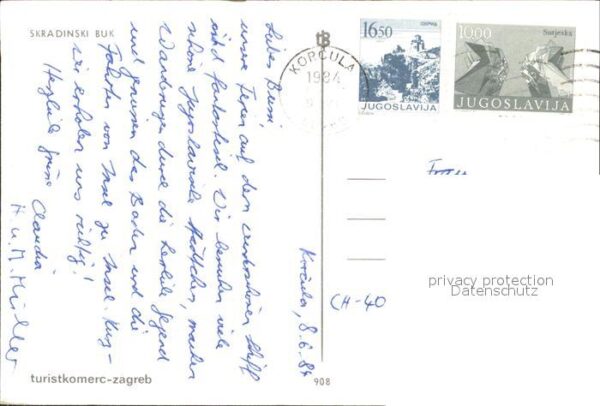 SKRADINSKI BUK
KORČULA
1984
16,50
JUGOSLAVIJA
Sutjeska
10,00
JUGOSLAVIJA
Korčula, 8.6.84
unsere Ferien auf dem
sind fantastisch. Wir besuchen viele
schöne jugoslavische Städtchen, machen
Wanderungen durch die herrliche Gegend
und geniessen das Baden und die
Fahrten von Insel zu Insel. Kurz-
wir erholen uns richtig!
Herzliche Grüsse Claudia
H. u. M. Müller
CH-40
privacy protection
Datenschutz
turistkomerc-zagreb
908